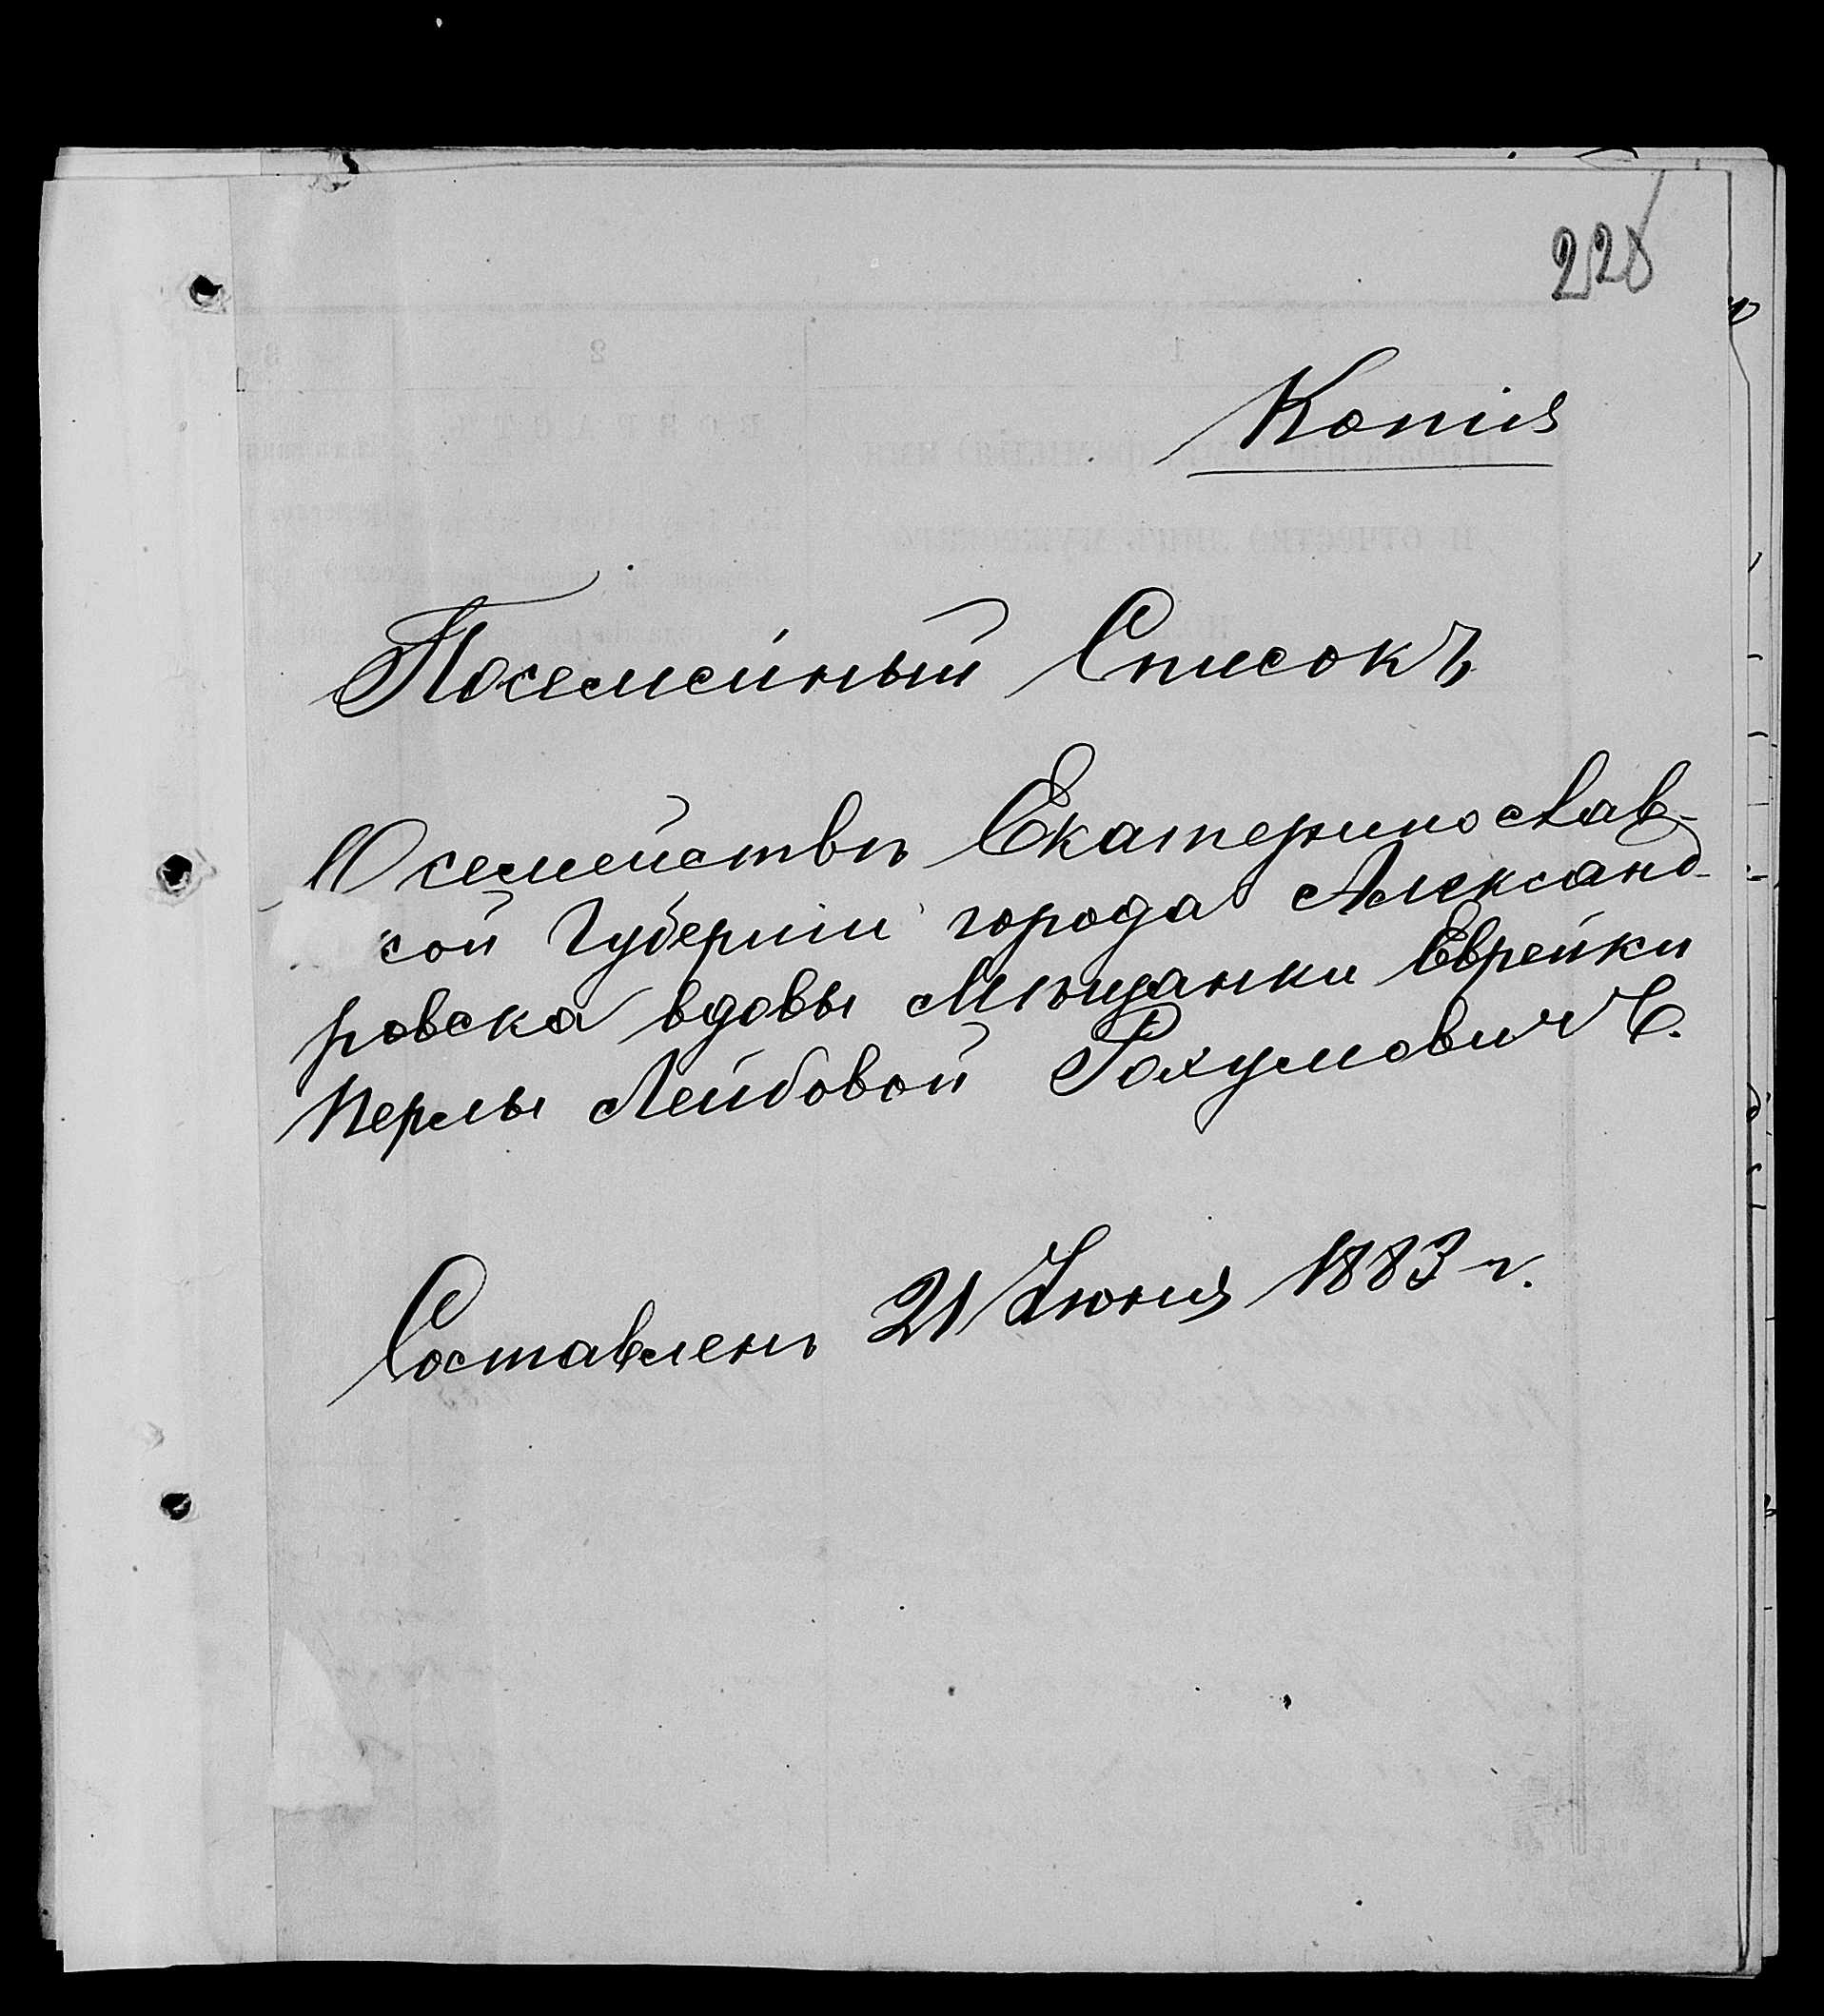 228
Копія
Посемейный Списокъ
О семействѣ Екатеринослав-
ской Губерніи города Александ-
ровска вдовы Мѣщанки Еврейки
Перлы Лейбовой Рохумовичъ.
Составленъ 21 Іюня 1883 г.